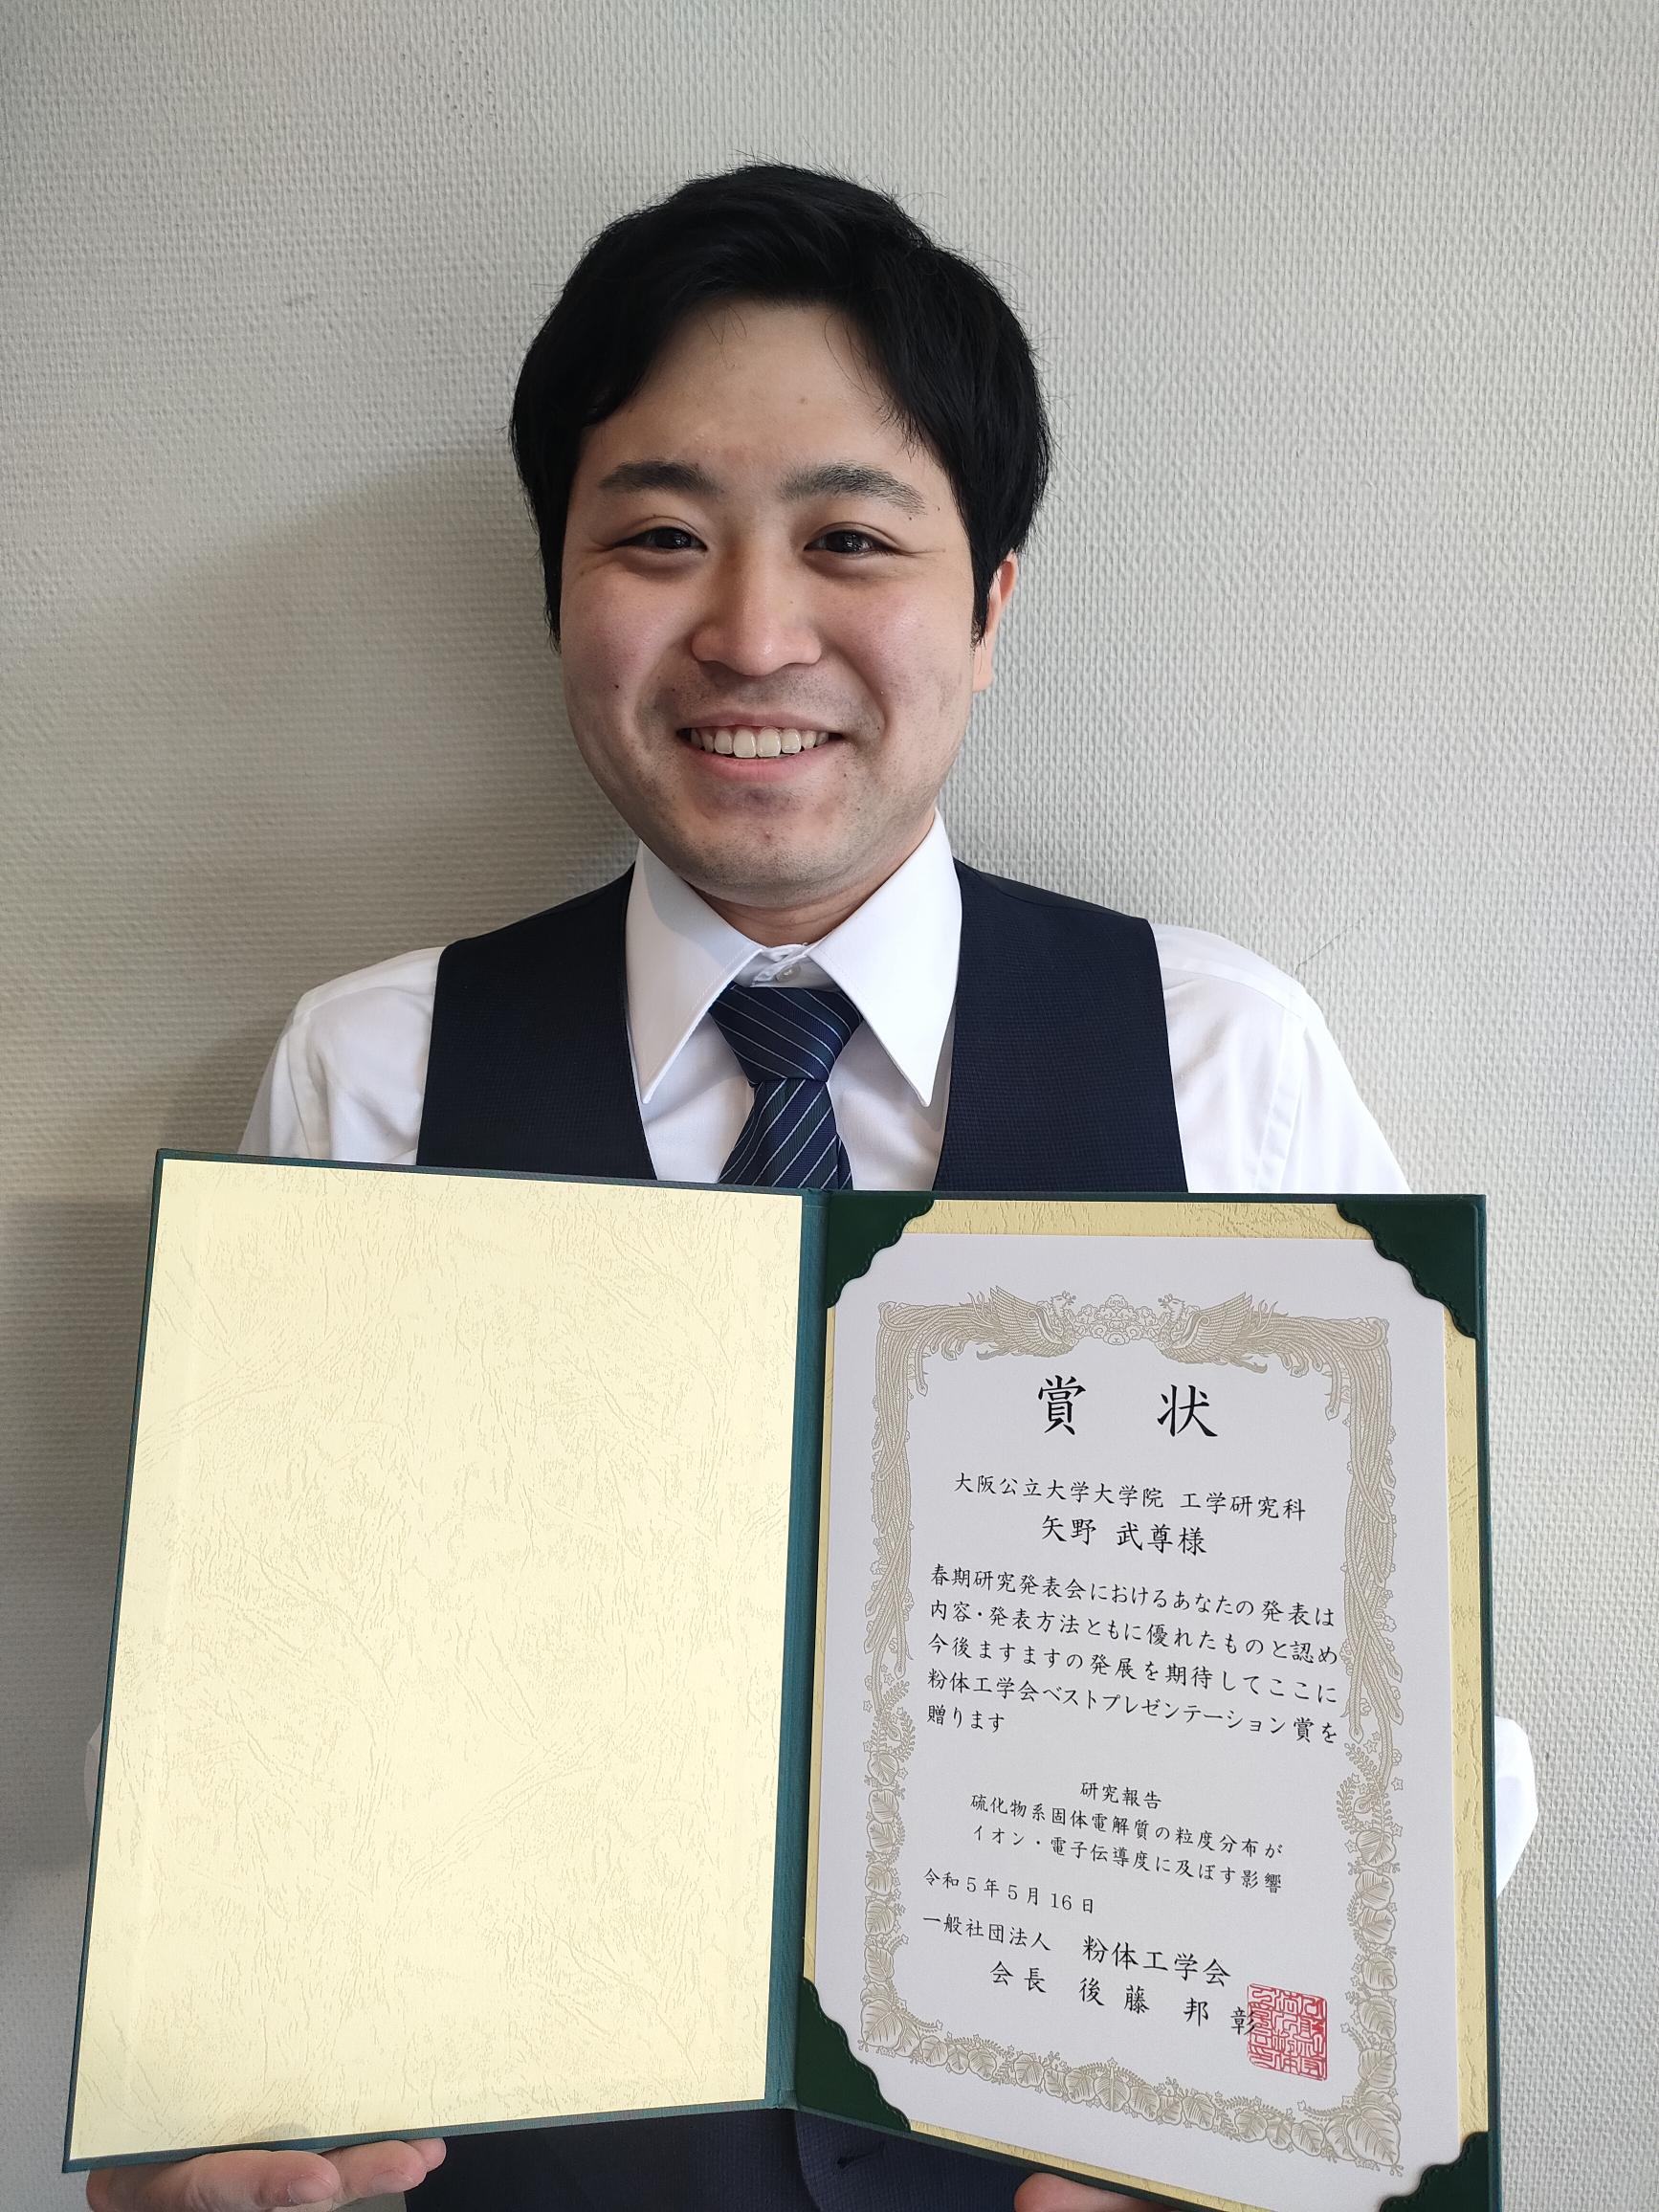 賞 状
大阪公立大学大学院 工学研究科
矢野 武尊様
春期研究発表会におけるあなたの発表は
内容・発表方法ともに優れたものと認め
今後ますますの発展を期待してここに
粉体工学会ベストプレゼンテーション賞を
贈ります
研究報告
硫化物系固体電解質の粒度分布が
イオン・電子伝導度に及ぼす影響
令和5年5月16日
一般社団法人 粉体工学会
会長 後藤 邦彰